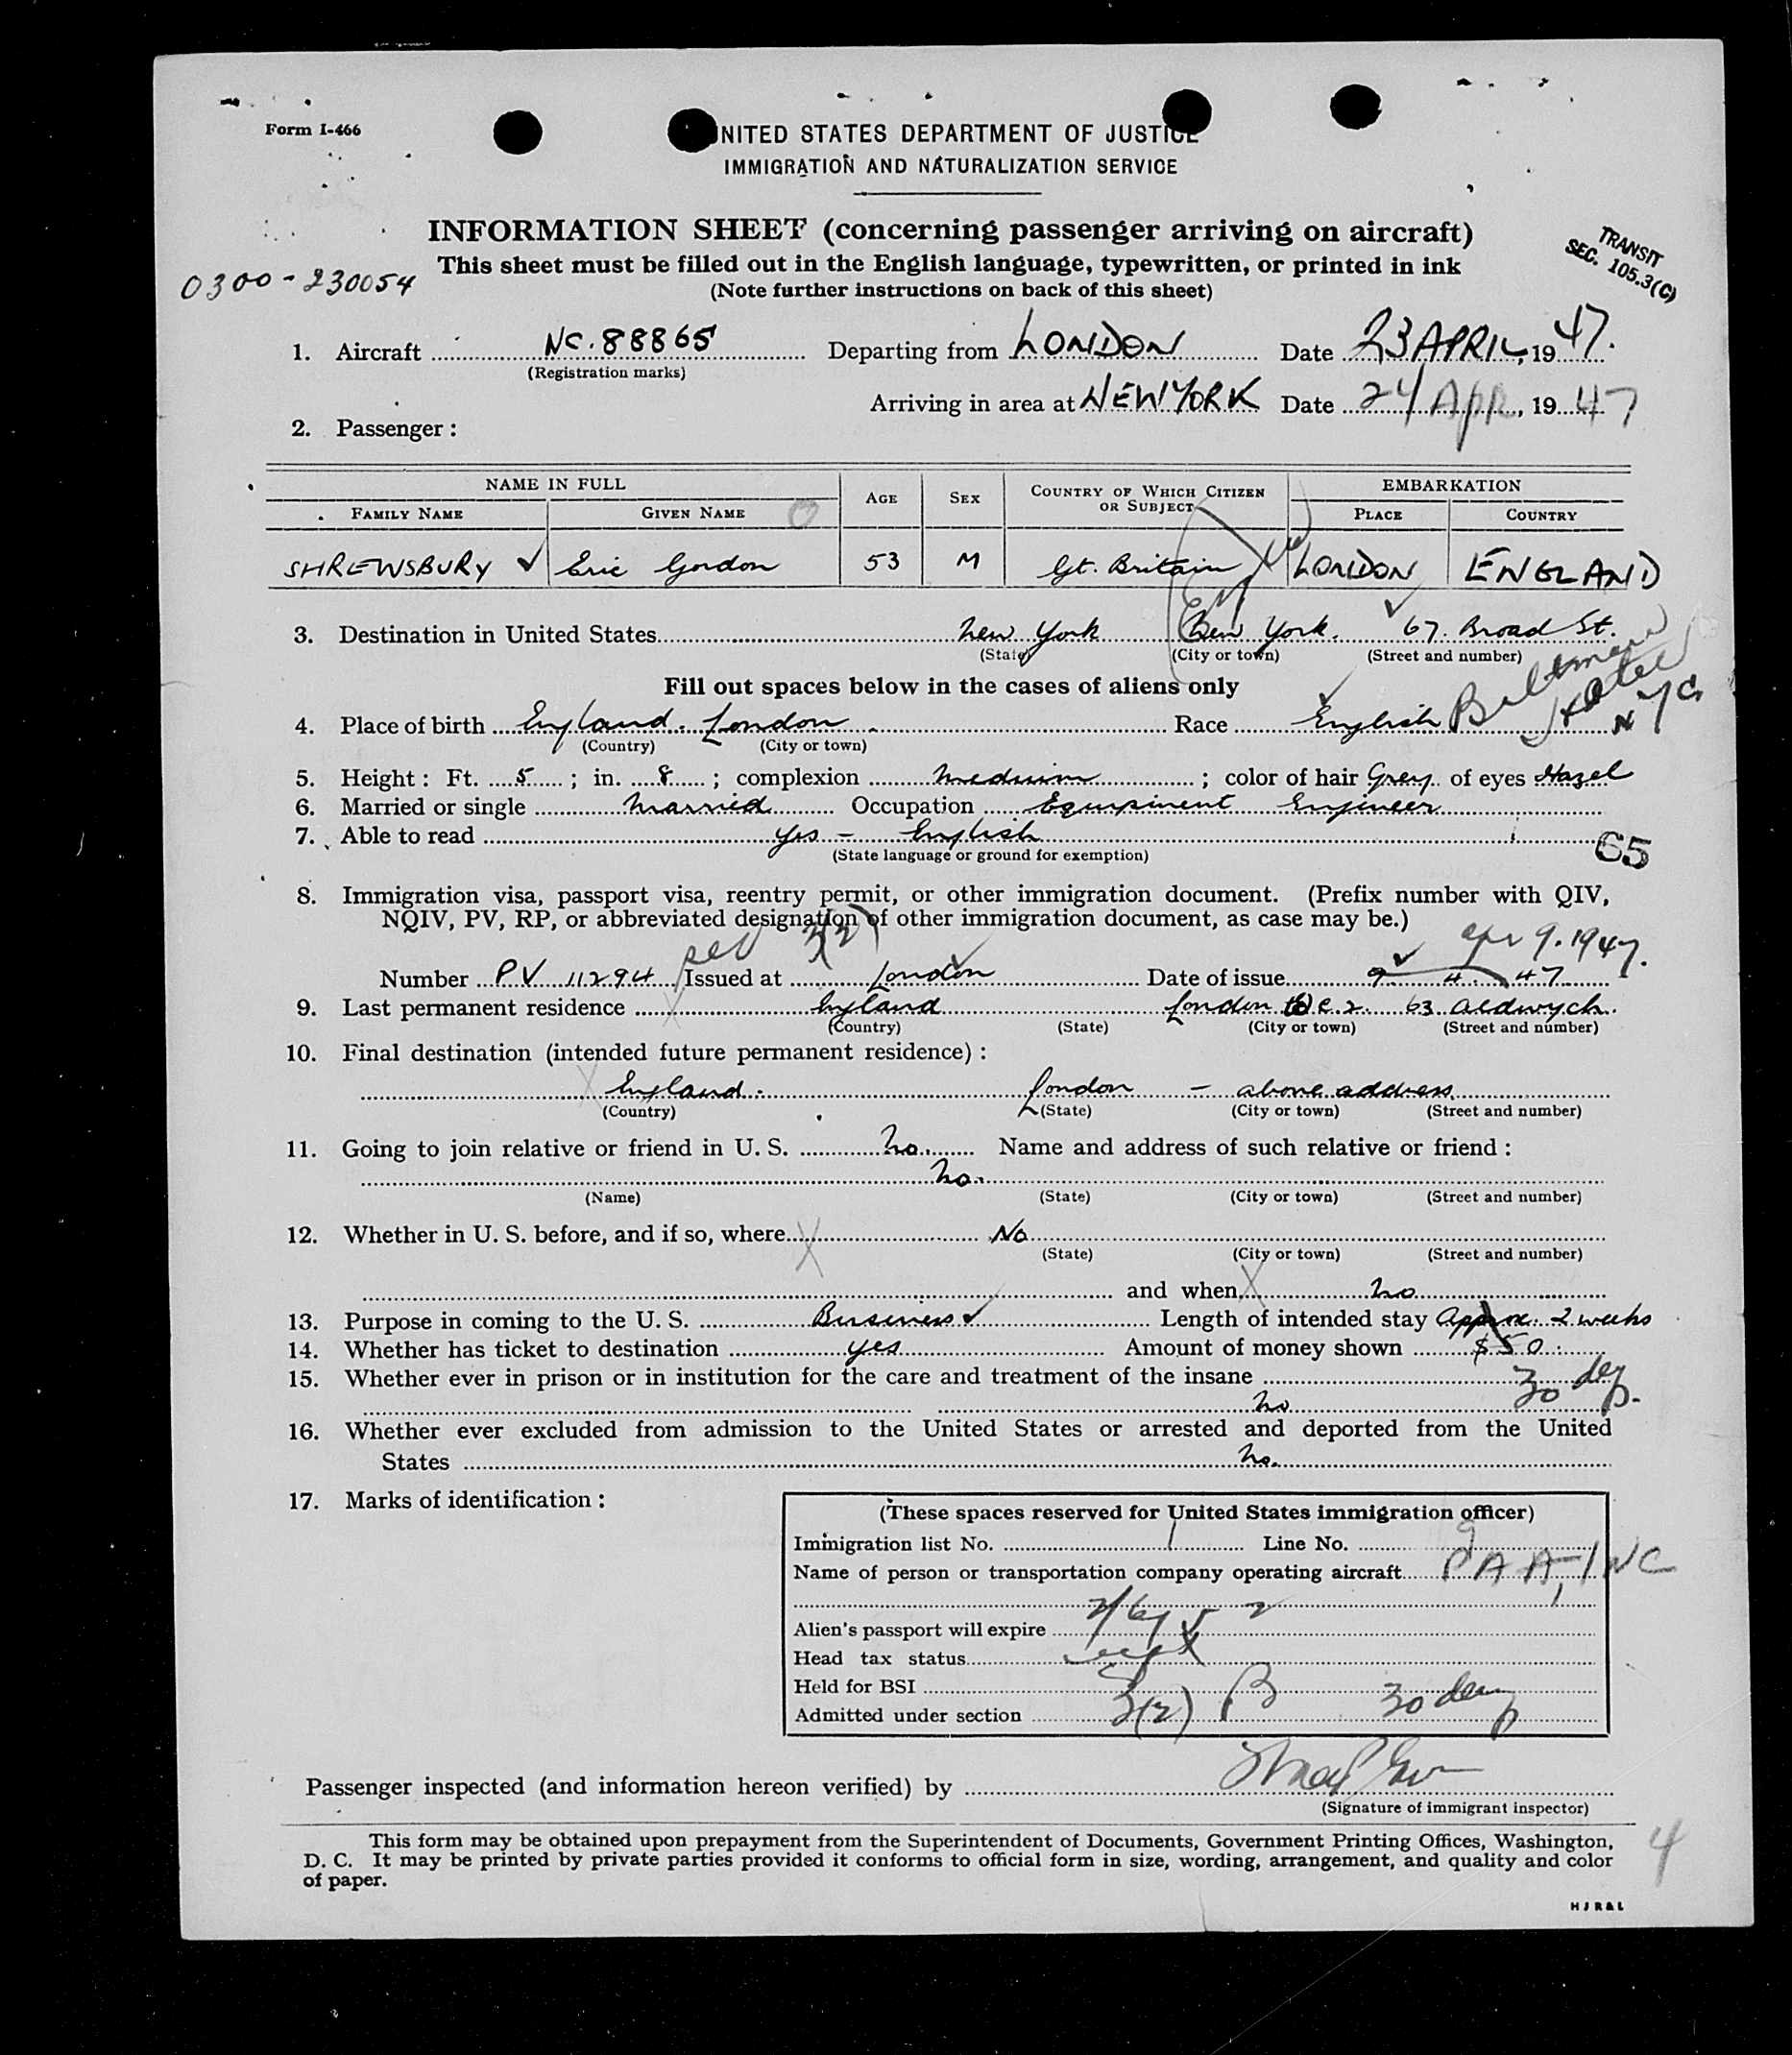 Form I-466
UNITED STATES DEPARTMENT OF JUSTICE
IMMIGRATION AND NATURALIZATION SERVICE
INFORMATION SHEET (concerning passenger arriving on aircraft)
This sheet must be filled out in the English language, typewritten, or printed in ink
(Note further instructions on back of this sheet)
0300-230054
TRANSIT
SEC. 105.3(C)
1. Aircraft NC.88865 Departing from LONDON Date 23 APRIL, 1947.
(Registration marks)
Arriving in area at NEW YORK Date 24 Apr, 1947
2. Passenger :
NAME IN FULL AGE SEX COUNTRY OF WHICH CITIZEN OR SUBJECT EMBARKATION
FAMILY NAME GIVEN NAME PLACE COUNTRY
SHREWSBURY Eric Gordon 53 M Gt. Britain LONDON ENGLAND
Eng
3. Destination in United States New York New York. 67 Broad St.
(State) (City or town) (Street and number)
Biltmore
Hotel
NYC
Fill out spaces below in the cases of aliens only
4. Place of birth England. London Race English
(Country) (City or town)
5. Height : Ft. 5 ; in. 8 ; complexion Medium ; color of hair Grey of eyes Hazel
6. Married or single Married Occupation Equipment Engineer
7. Able to read Yes - English
(State language or ground for exemption)
65
8. Immigration visa, passport visa, reentry permit, or other immigration document. (Prefix number with QIV,
NQIV, PV, RP, or abbreviated designation of other immigration document, as case may be.)
3(2) apr 9. 1947.
Number PV 11294 Issued at London Date of issue 9 4 47
9. Last permanent residence England London W.C.2. 63 Aldwych.
(Country) (State) (City or town) (Street and number)
10. Final destination (intended future permanent residence) :
England. London - above address.
(Country) (State) (City or town) (Street and number)
11. Going to join relative or friend in U. S. No. Name and address of such relative or friend :
No.
(Name) (State) (City or town) (Street and number)
12. Whether in U. S. before, and if so, where No
(State) (City or town) (Street and number)
and when no
13. Purpose in coming to the U. S. Business Length of intended stay Approx. 2 weeks
14. Whether has ticket to destination yes Amount of money shown $50.
15. Whether ever in prison or in institution for the care and treatment of the insane
no 30 dep.
16. Whether ever excluded from admission to the United States or arrested and deported from the United
States no.
17. Marks of identification :
(These spaces reserved for United States immigration officer)
Immigration list No. 1 Line No. 9
Name of person or transportation company operating aircraft PAA, INC
Alien's passport will expire 2/6/52
Head tax status
Held for BSI
Admitted under section 3(2) B 30 dep
Passenger inspected (and information hereon verified) by
(Signature of immigrant inspector)
This form may be obtained upon prepayment from the Superintendent of Documents, Government Printing Offices, Washington,
D. C. It may be printed by private parties provided it conforms to official form in size, wording, arrangement, and quality and color
of paper.
4
HJR&L